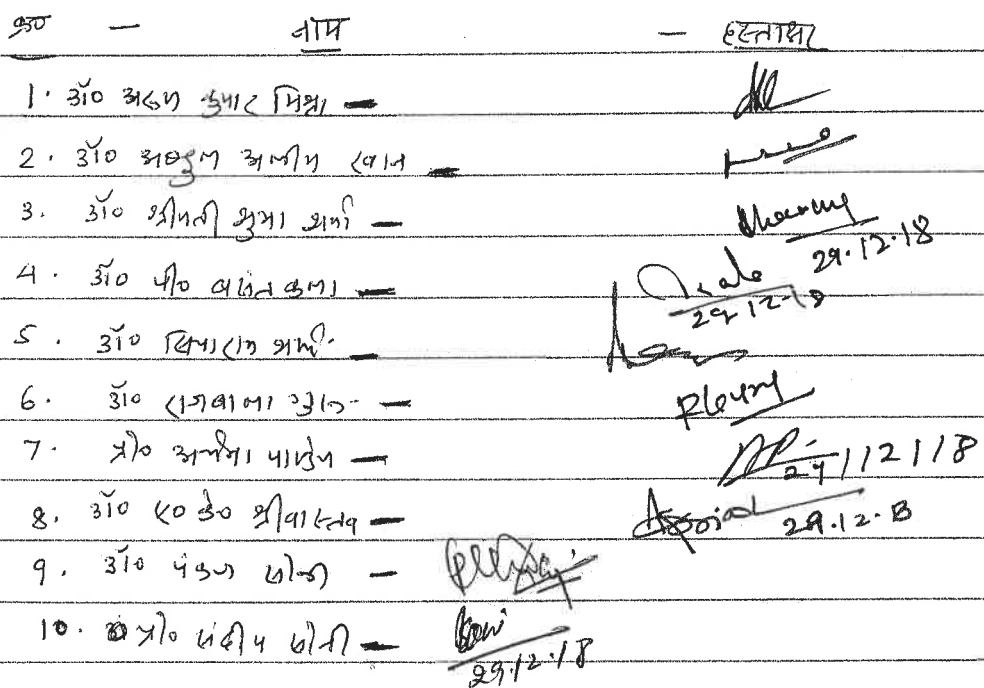 क्र० — नाम — हस्ताक्षर
1. डॉ० अरुण कुमार मिश्रा —
2. डॉ० अब्दुल अलीम खान —
3. डॉ० श्रीमती शुभा शर्मा — 29.12.18
4. डॉ० पी० वसंतकला — 29.12.18
5. डॉ० सियाराम शर्मा —
6. डॉ० —
7. प्रो० पाण्डेय — 29/12/18
8. डॉ० ए० के० श्रीवास्तव — 29.12.18
9. डॉ० पंकज सोनी —
10. प्रो० संदीप सोनी — 29.12.18